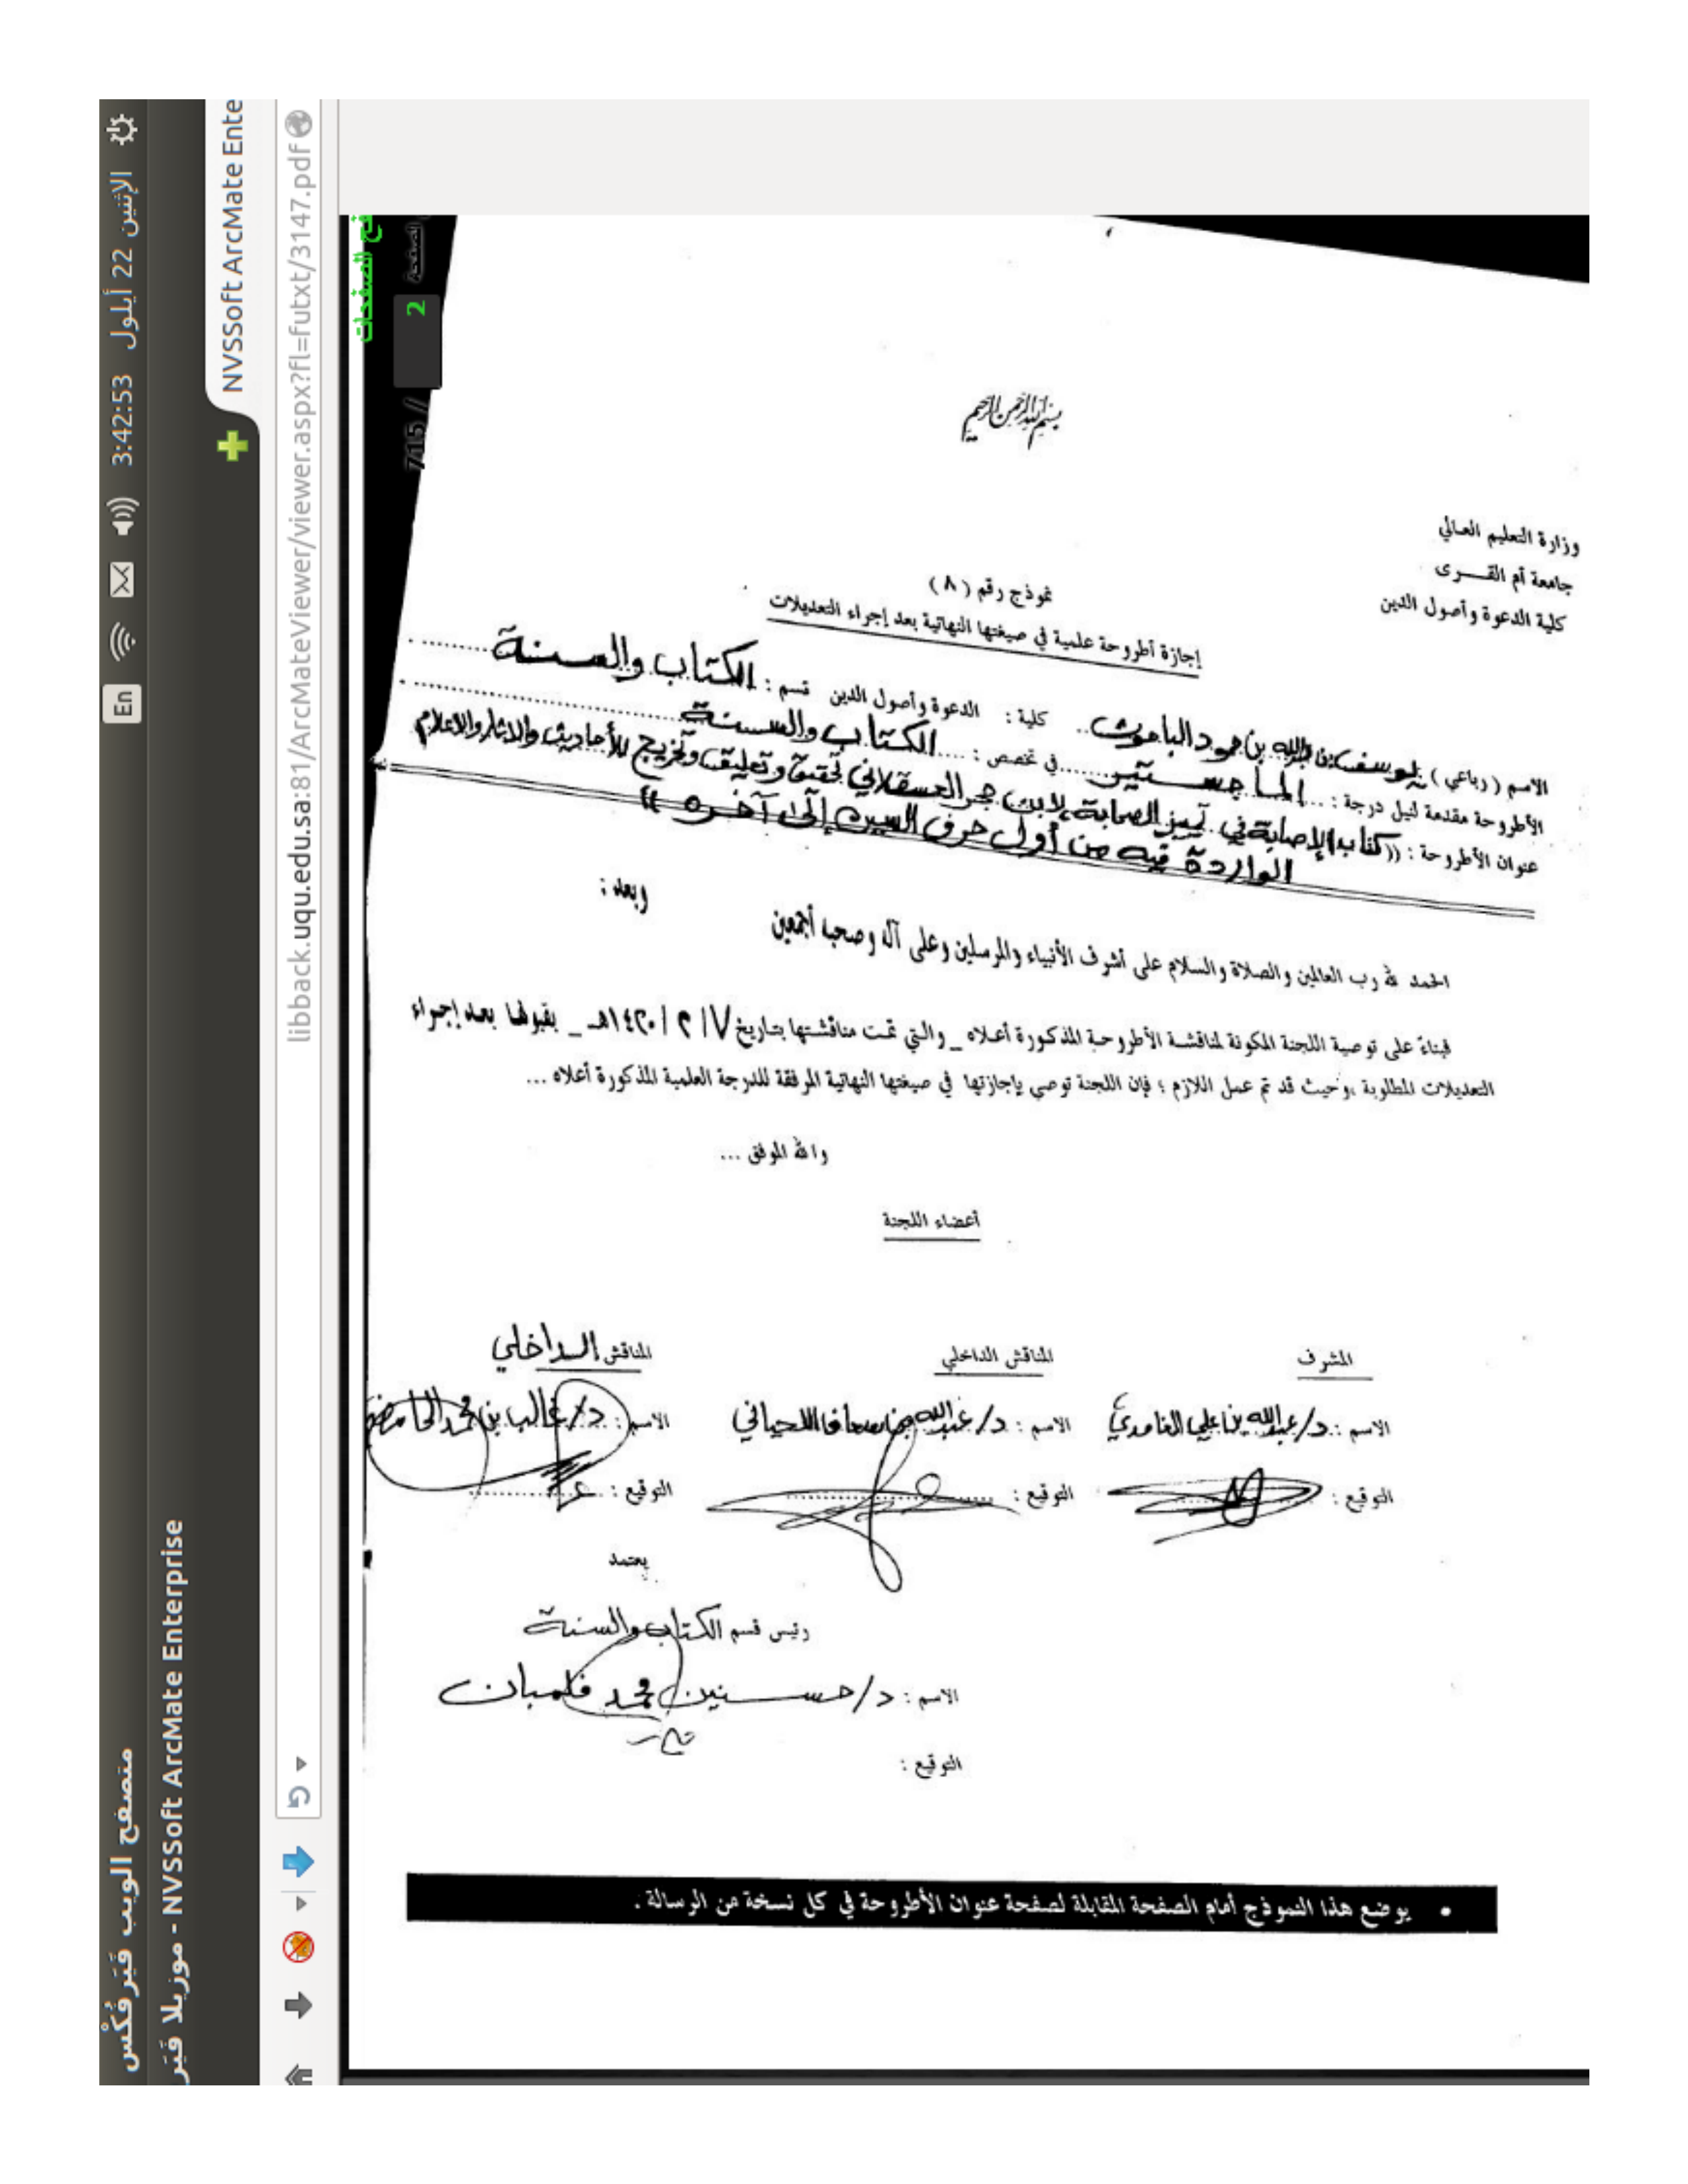 متصفح الويب فَيَرفُكْس
En
3:42:53
الإثنين 22 أيلول
NVSSoft ArcMate Enterprise - موزيلا فَيَر
NVSSoft ArcMate Ente
libback.uqu.edu.sa:81/ArcMateViewer/viewer.aspx?fl=futxt/3147.pdf
الصفحات
الصفحة 2 // 715
بسم الله الرحمن الرحيم
وزارة التعليم العالي
جامعة أم القـــرى
كلية الدعوة وأصول الدين
نموذج رقم (٨)
إجازة أطروحة علمية في صيغتها النهائية بعد إجراء التعديلات
الاسم (رباعي) يوسف بن عبدالله بن حمود الباحوث.. كلية : الدعوة وأصول الدين قسم : الكتاب والسنة
الأطروحة مقدمة لنيل درجة : ...الماجستير.....في تخصص : ....الكتاب والسنة
عنوان الأطروحة : ((كتاب الإصابة في تمييز الصحابة لابن حجر العسقلاني تحقيق وتعليق وتخريج للأحاديث والآثار والأعلام
الواردة فيه من أول حرف السين إلى آخره ))
الحمد لله رب العالمين والصلاة والسلام على أشرف الأنبياء والمرسلين وعلى آله وصحبه أجمعين وبعد :
فبناءً على توصية اللجنة المكونة لمناقشة الأطروحة المذكورة أعلاه _ والتي تمت مناقشتها بتاريخ ٧ / ٢ / ١٤٢٠هـ _ بقبولها بعد إجراء
التعديلات المطلوبة ،وحيث قد تم عمل اللازم ؛ فإن اللجنة توصي بإجازتها في صيغتها النهائية المرفقة للدرجة العلمية المذكورة أعلاه ...
والله الموفق ...
أعضاء اللجنة
المشرف المناقش الداخلي المناقش الداخلي
الاسم : د/عبدالله بن علي الغامدي الاسم : د/ عبدالله بن سعاف اللحياني الاسم : د/غالب بن محمد الحامضي
التوقيع : التوقيع : التوقيع :
يعتمد
رئيس قسم الكتاب والسنة
الاسم : د/حسنين محمد فلمبان
التوقيع :
• يوضع هذا النموذج أمام الصفحة المقابلة لصفحة عنوان الأطروحة في كل نسخة من الرسالة .